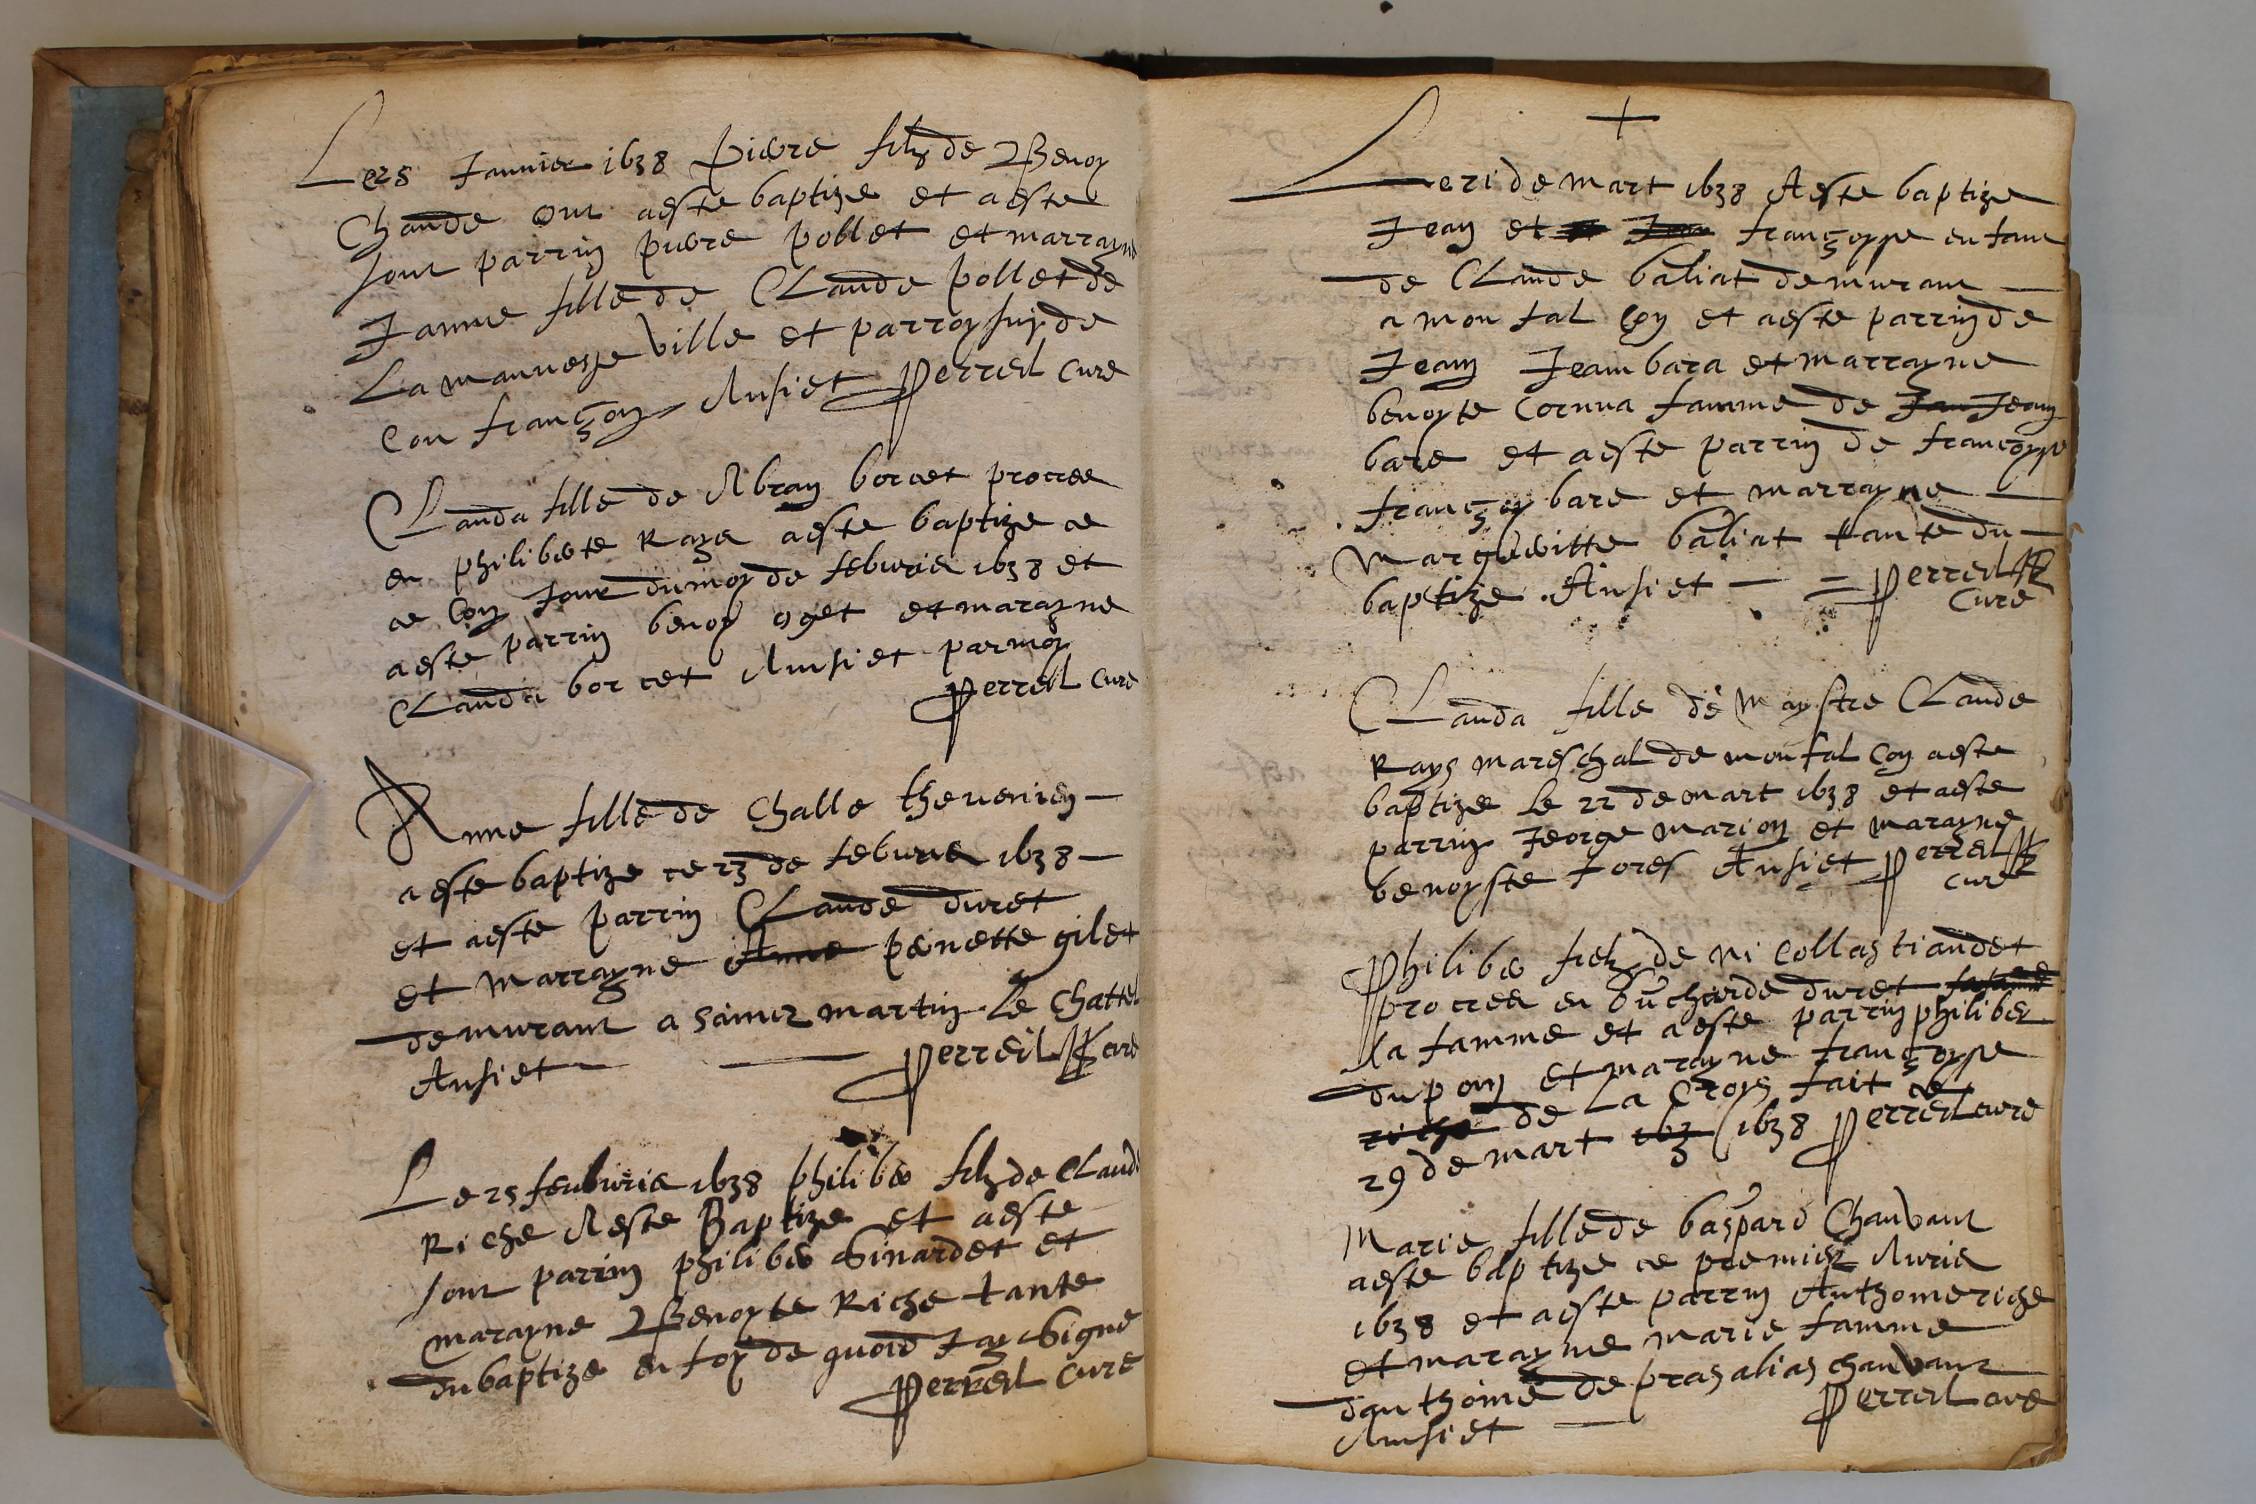 Le 25 Janvier 1638 Pierre filz de Benoy
Chaude ont aeste baptize et aeste
sont parrin pierre pollet et marrayne
Janne fille de Claude pollet de
La mannesse ville et parroysse de
Con françoy Ainsi et Perreil cure
Clauda fille de Abran borcet procree
en philiberte Raye aeste baptize ce
ce jour du moy de feburie 1638 et
aeste parrin benoy oget et marayne
Clauda borcet Ainsi et par moy
Perreil cure
Anne fille de Challe thevenien
aeste baptize ce 23 de feburie 1638
et aeste parrin Claude duret
et marrayne Anne pernette gilet
demurant a sainct martin Le Chattel
Ainsi et Perreil cure
Le 25 feuburie 1638 philiber filz de Claude
Riche Aeste Baptize et aeste
sont parrin philiber Sinardet et
marayne Benoyte Riche tante
du baptize en foy de quoid Jay Signe
Perreil cure
Le 21 de mart 1638 Aeste baptize
Jean et françoyse enfant
de Claude baliat demurant
a montalcon et aeste parrin de
Jean Jean bara et marrayne
benoyte Cornua famme de Jean
bare et aeste parrin de françoyse
françoy bare et marrayne
Margueritte baliat tante du
baptize Ainsi et Perreil
cure
Clauda fille de Maystre Claude
Rays mareschal de montalcon aeste
baptize Le 22 de mart 1638 et aeste
parrin Jeorge marion et marayne
benoyste fores Ainsi et Perreil
cure
Philiber fielz de nicollas tiaudet
procree en bucharde duret
sa famme et aeste parrin philiber
dupon et marayne françoyse
riche de La Croys fait ce
29 de mart 163 1638 Perreil cure
Marie fille de gaspard Chauvant
aeste baptize ce premier Avrie
1638 et aeste parrin Anthoine riche
et marayne marie famme
d'anthoine de pras alias chauvant
Ainsi et Perreil cure